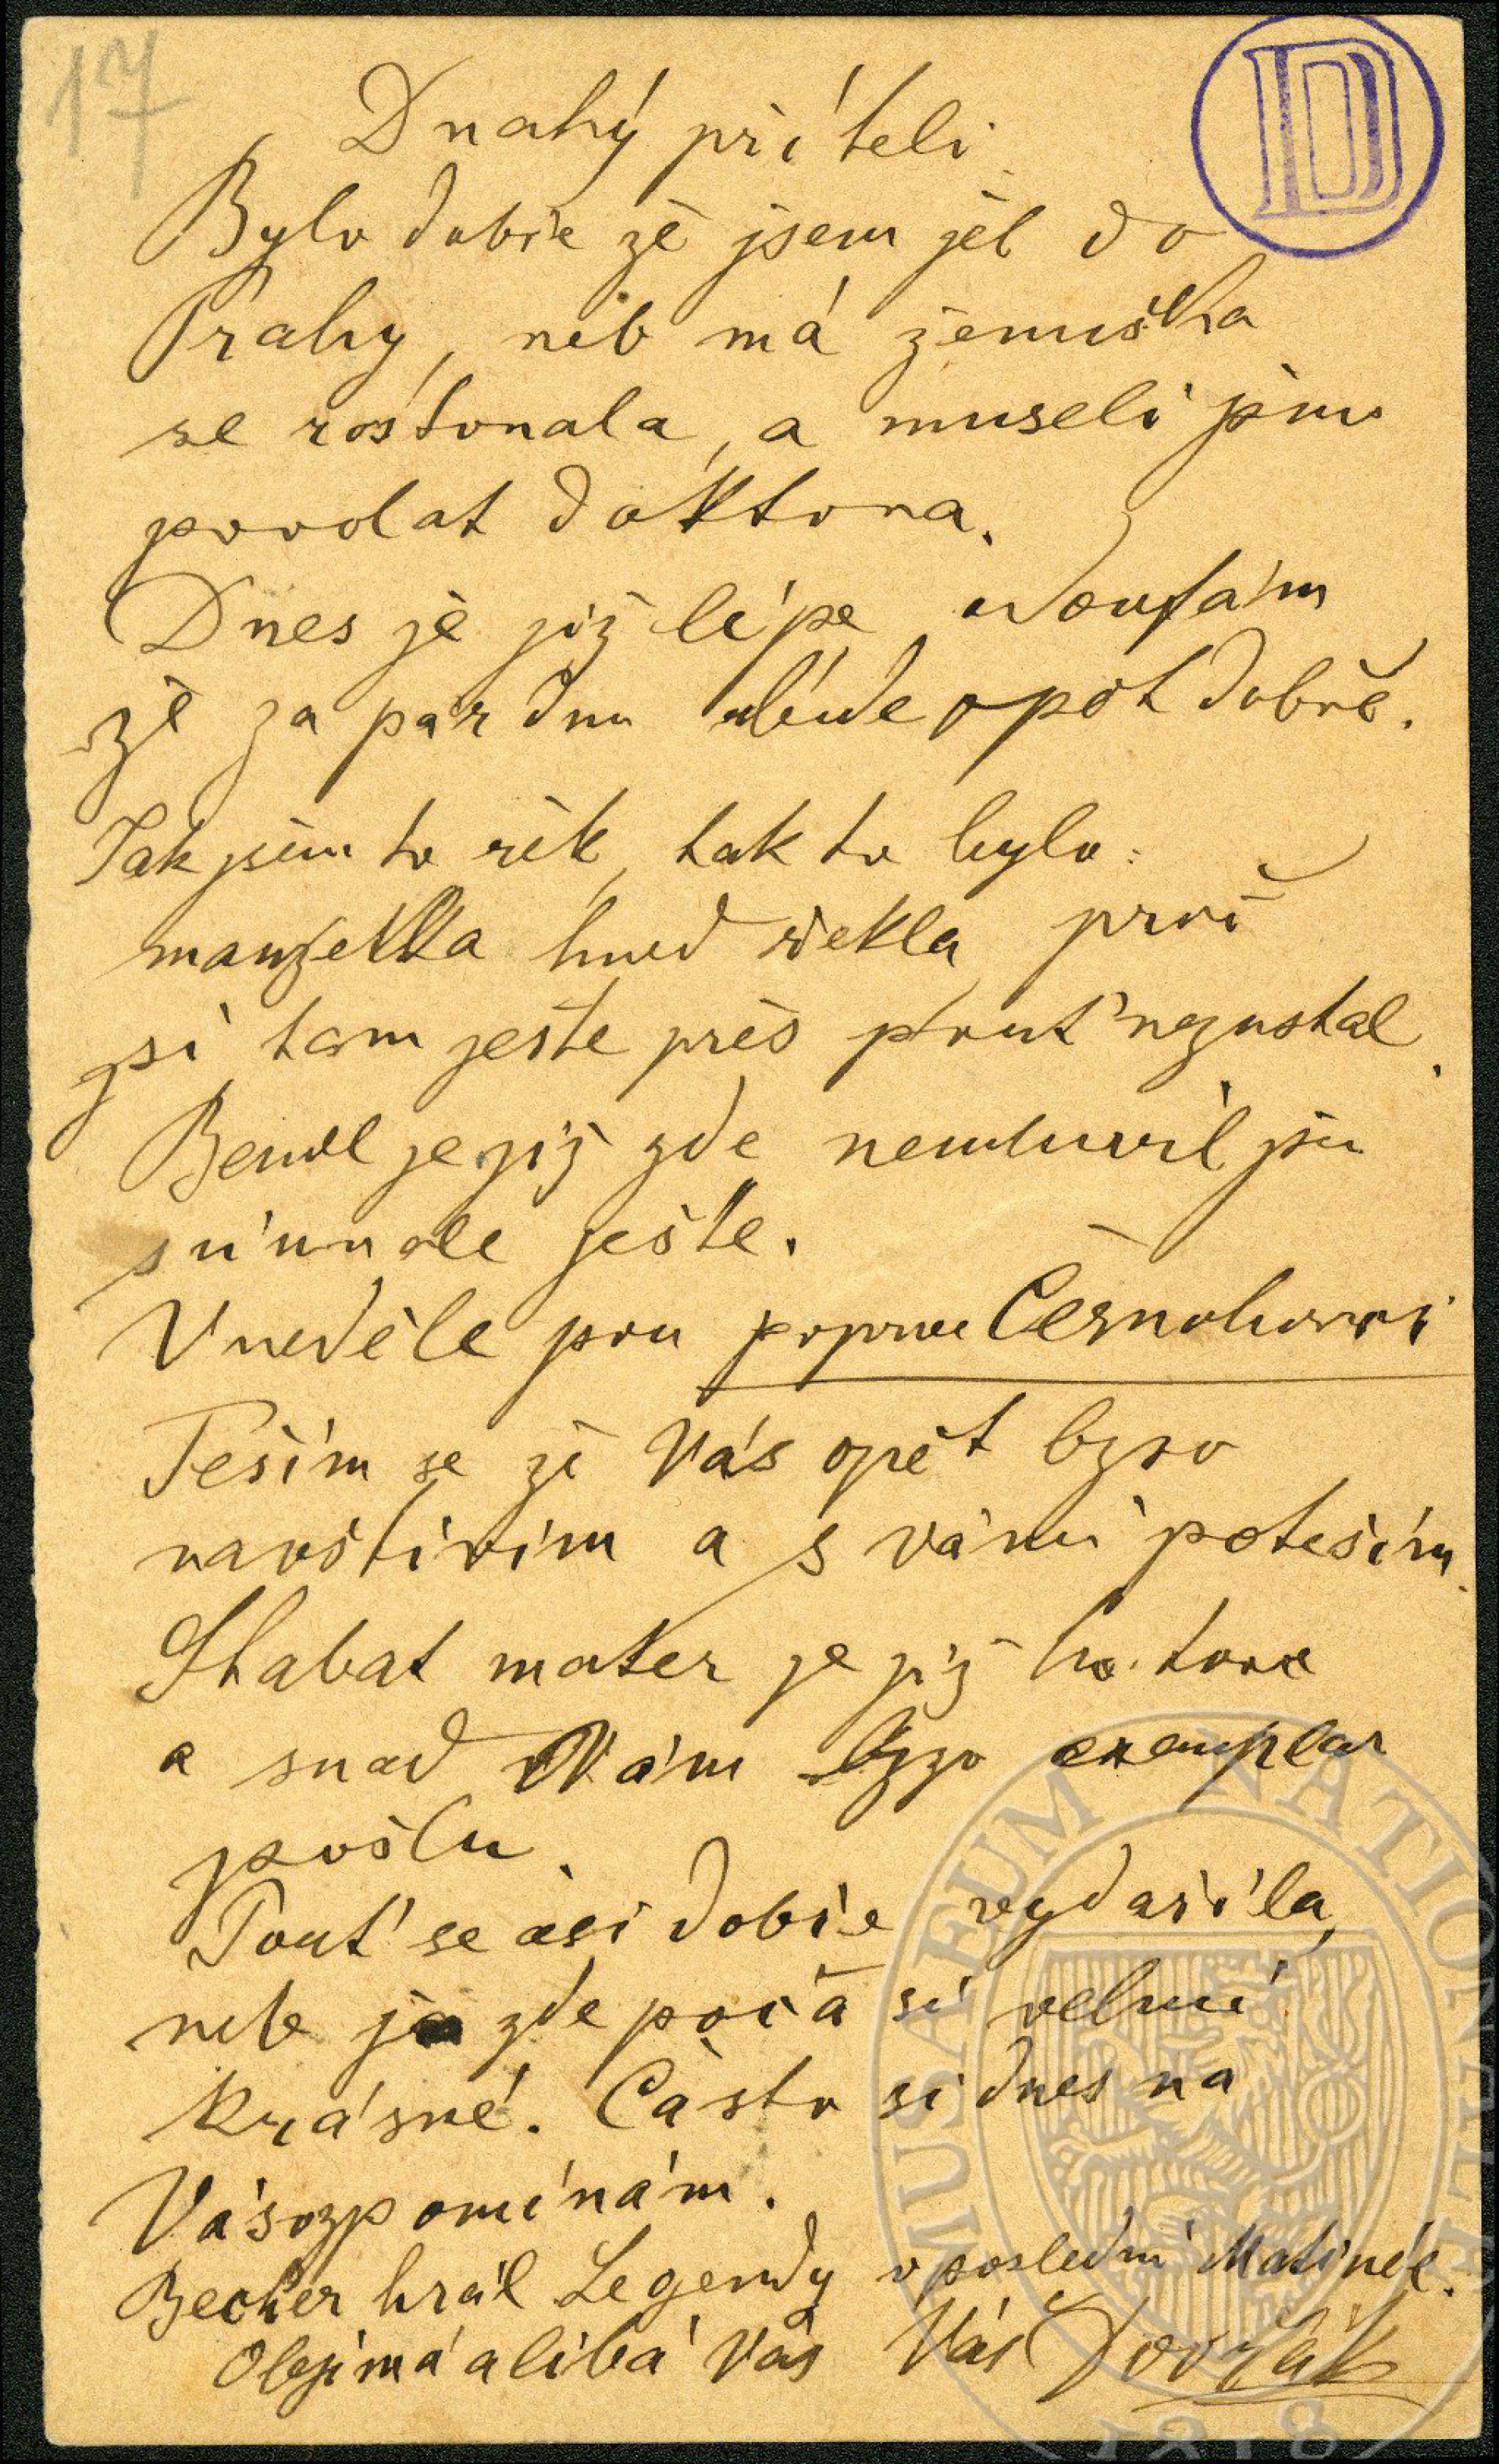 17
D
Drahý příteli
Bylo dobře že jsem jel do
Prahy, neb má ženuška
se rostonala, a museli jsme
povolat doktora.
Dnes je již lépe, a doufám
že za pár dnu bude opět dobře.
Tak jsem to řek, tak to bylo:
manželka hned řekla, proč
jsi tam ještě přes pouť nezustal.
Bendl je již zde nemluvil jsem
s ním ale ještě.
V neděle jsou poprvé Černohorci
Těším se že Vás opět bzo
navštívím a s vámi potěším.
Stabat mater je již hotove
a snad Vám bzo exemplar
pošlu.
Pouť se asi dobře vydařila,
nebo je zde počasí velmi
krásné. Často si dnes na
Vás vzpomínám.
Becker hrál Legendy v poslední Matinée.
Objímá a líbá Vás Váš Dvořák
MUSAEUM NATIONALE
1818